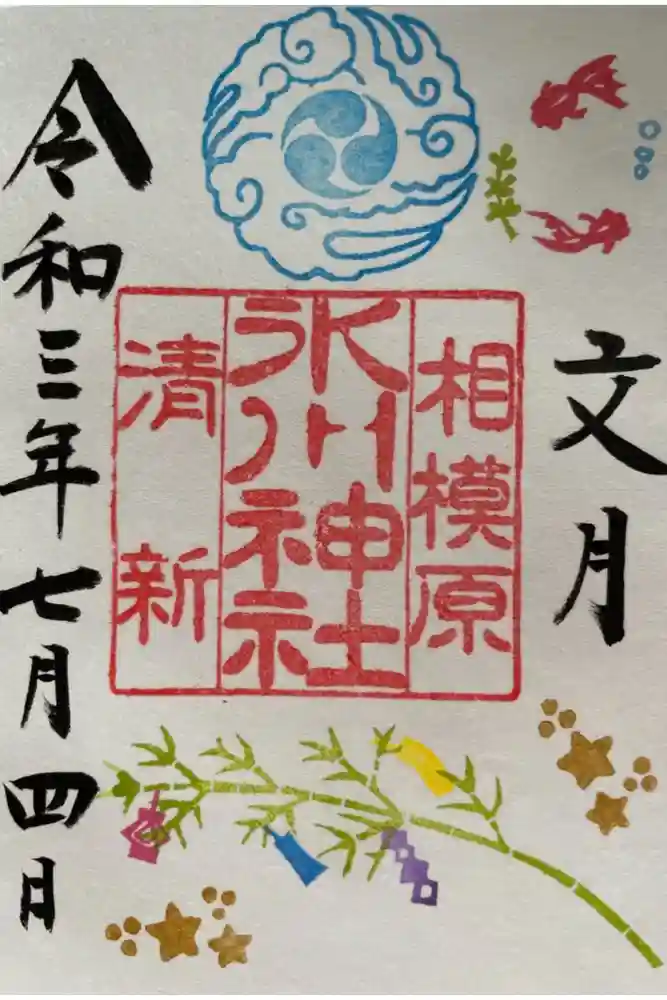 文月
相模原
氷川神社
清新
令和三年七月四日